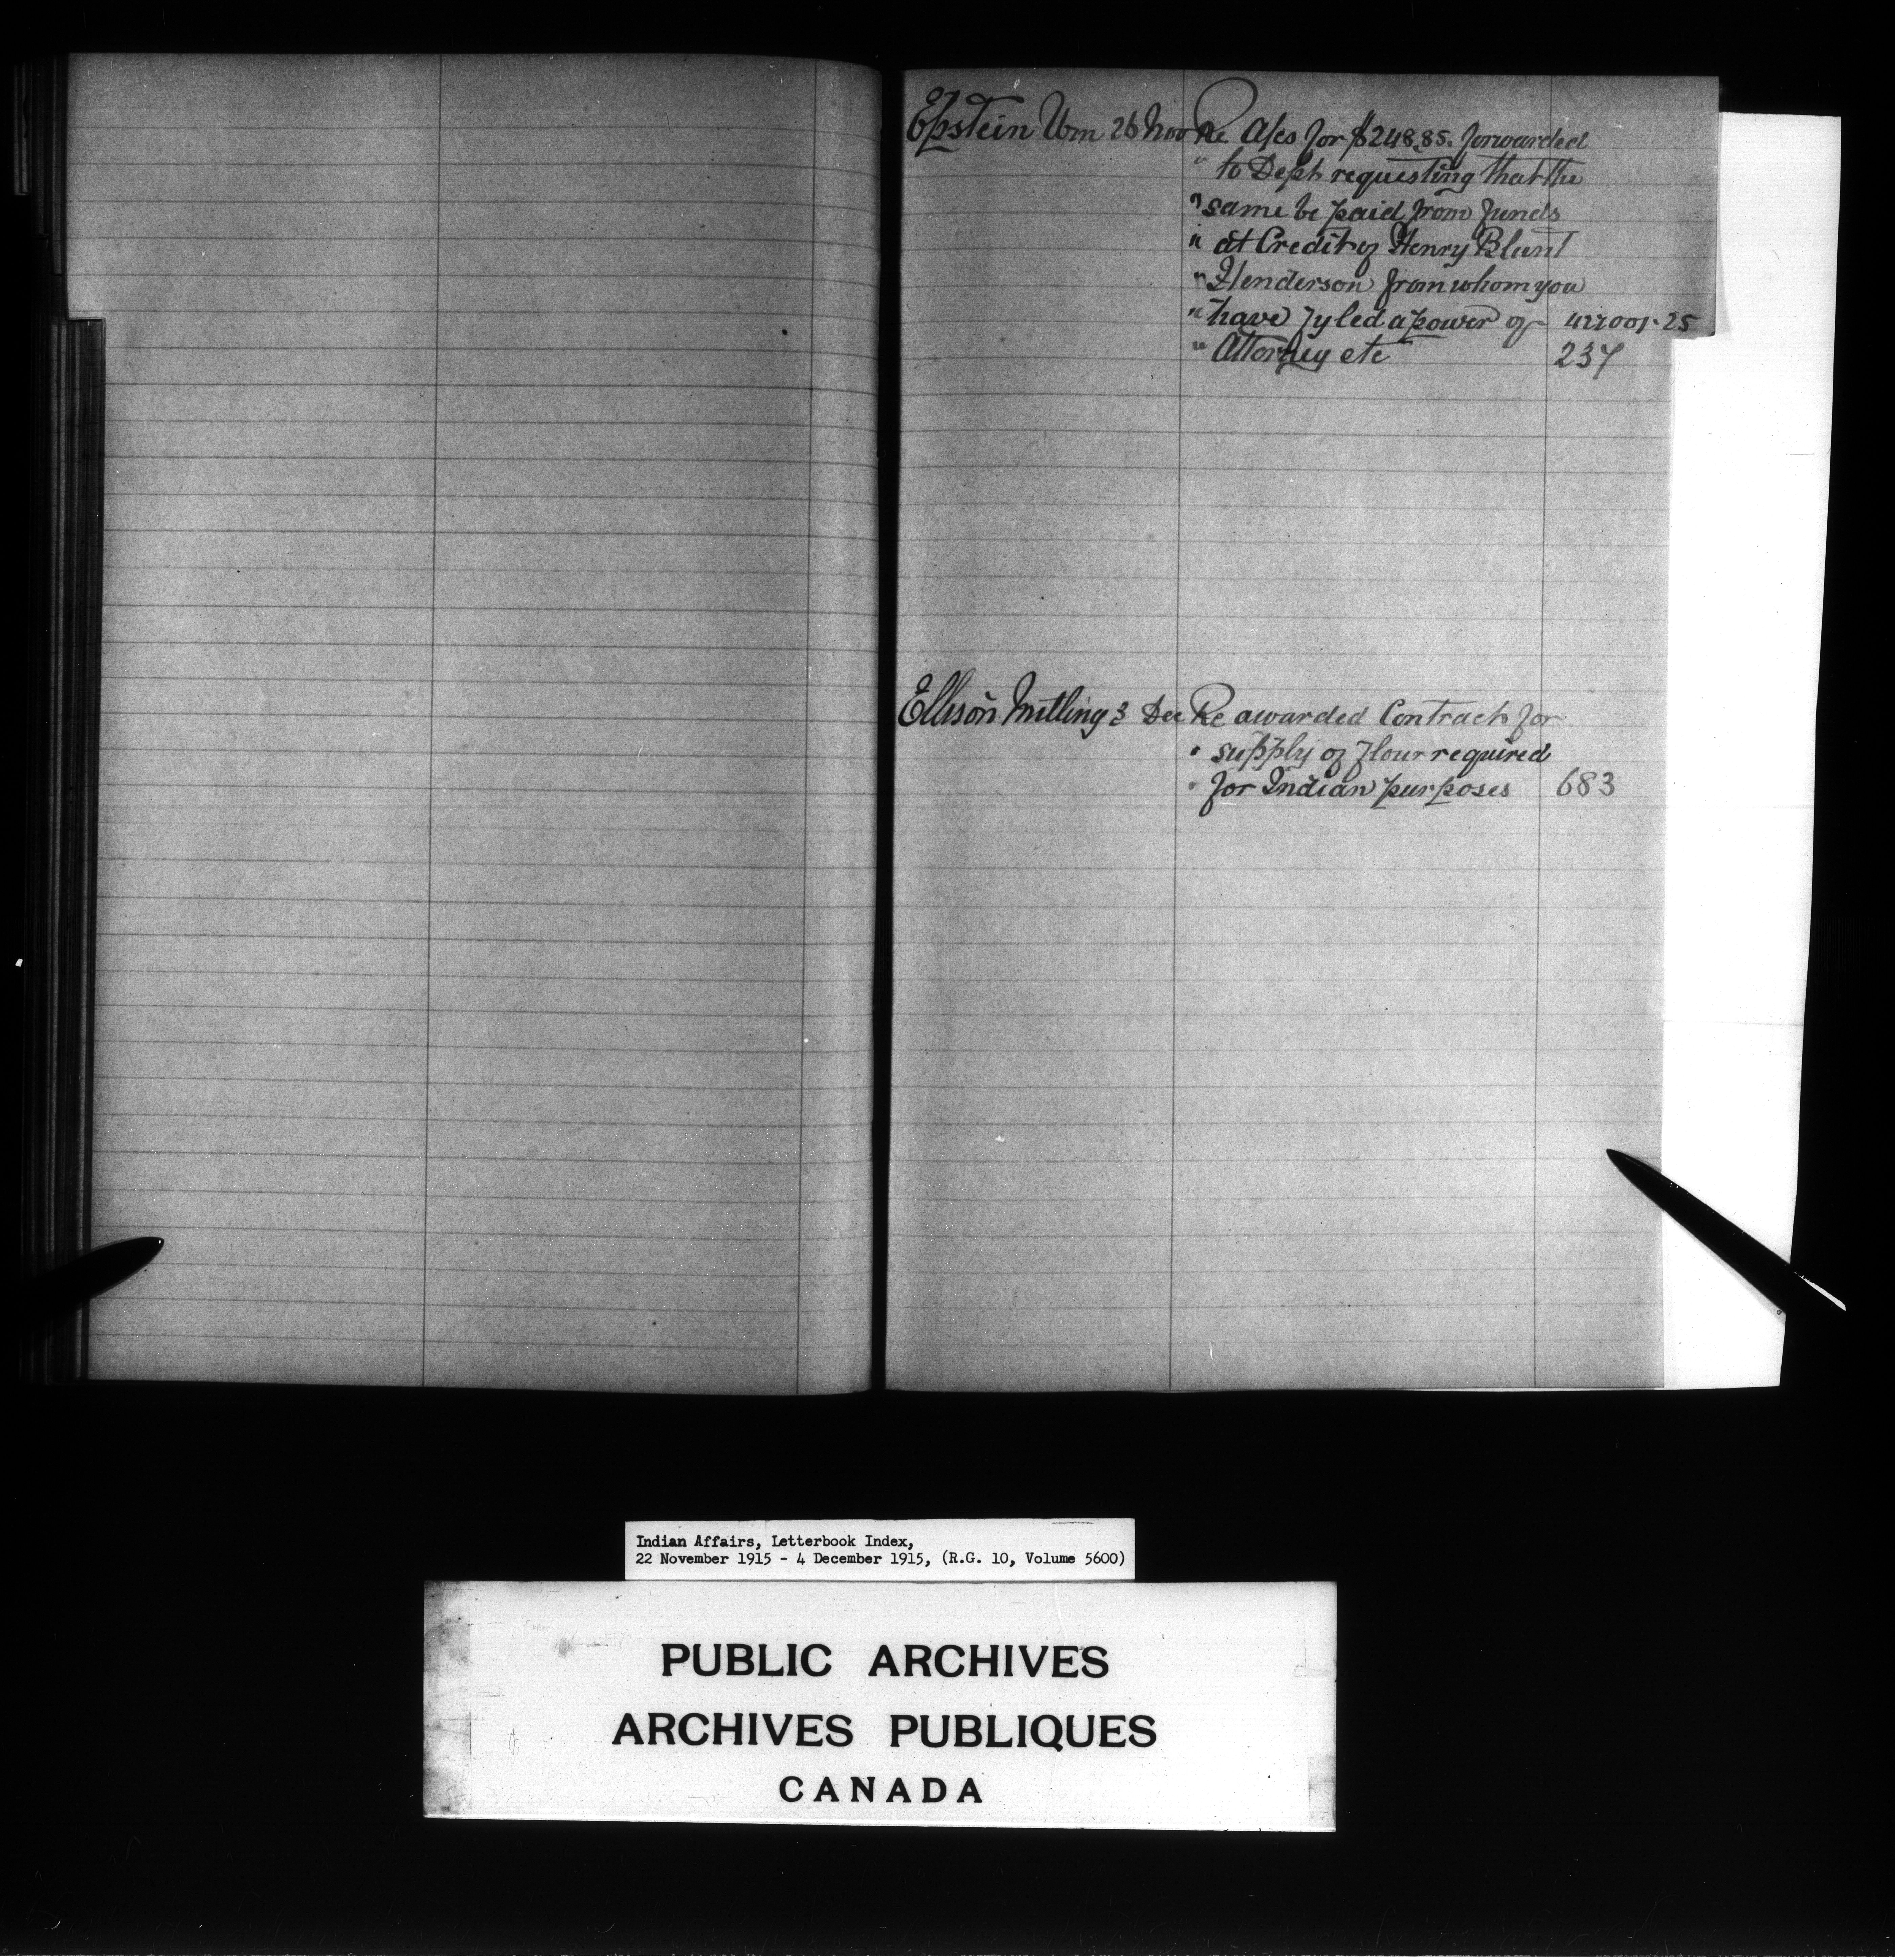 Epstein Wm 26 Nov Re A/cs for $248.85. forwarded
" to Dept requesting that the
" same be paid from funds
" at Credit of Henry Blunt
" Henderson from whom you
" have fyled a power of 427001-25
" Attorney etc 237
Ellison Milling 3 Dec Re awarded Contract for
" supply of flour required
" for Indian purposes 683
Indian Affairs, Letterbook Index,
22 November 1915 - 4 December 1915, (R.G. 10, Volume 5600)
PUBLIC ARCHIVES
ARCHIVES PUBLIQUES
CANADA